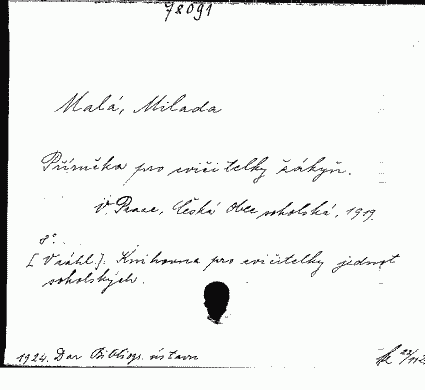 78091
Malá, Milada
Příručka pro cvičitelky žákyň.
V Praze, Česká obec sokolská, 1919.
8°.
[V záhl.]: Knihovna pro cvičitelky jednot
sokolských.
1924. Dar Bibliogr. ústavu